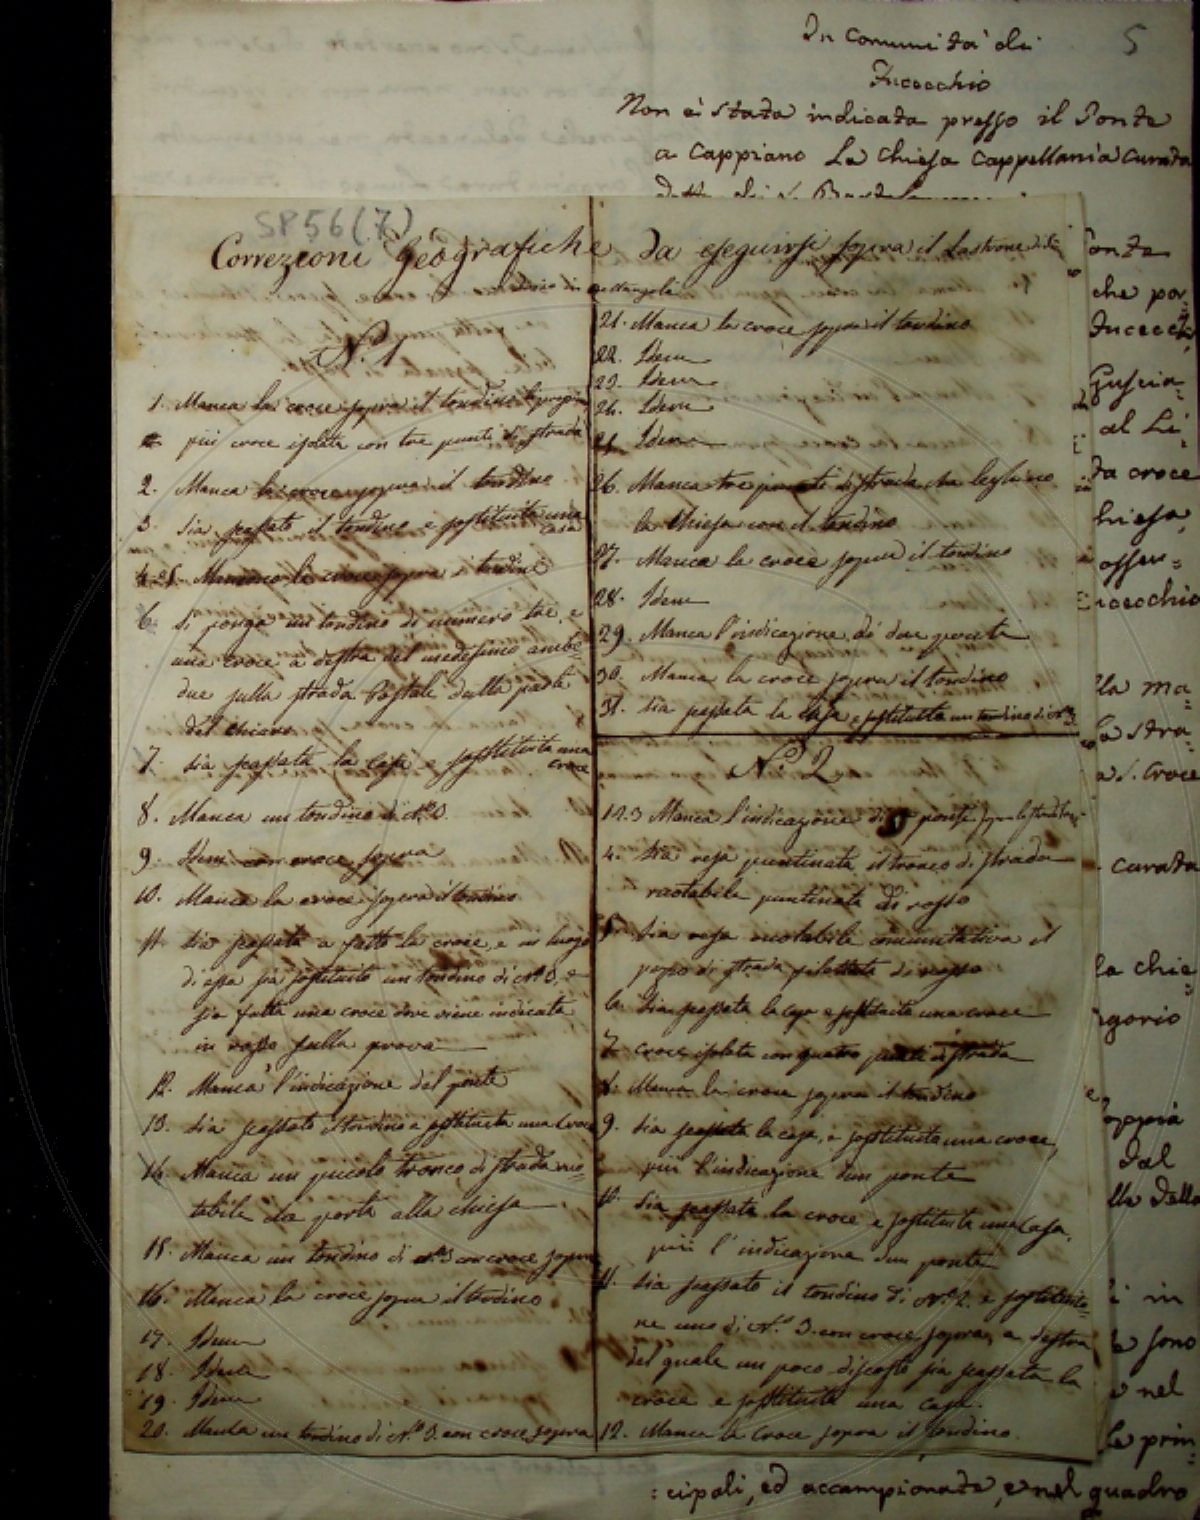 In Comunità di
5
Fucecchio
Non è stata indicata presso il Ponte
a Cappiano La Chiesa Cappellania Curata
SP56(7)
Correzioni Geografiche da eseguirsi sopra il Lastrone di
diviso in rettangoli
N. 1
1. Manca la croce sopra il tondino
più croce isolata con tre punti di strada
2. Manca la croce sopra il tondino
3. Sia cassato il tondino e sostituita una
casa
4. Mancano le croci sopra i tondini
6. Si ponga un tondino di numero tre, e
una croce a destra del medesimo ambe=
due sulla strada Postale dalla parte
del chiaro
7. Sia cassata la casa e sostituita una
croce
8. Manca un tondino di N.º 3.
9. Idem con croce sopra
10. Manca la croce sopra il tondino
11. Sia cassata a fatto la croce, e in luogo
di essa sia sostituito un tondino di N.º 3, e
sia fatta una croce dove viene indicata
in rosso sulla prova
12. Manca l'indicazione del ponte
13. Sia cassato il tondino e sostituita una Croce
14. Manca un piccolo tronco di strada ruo=
tabile che porta alla chiesa
15. Manca un tondino di N.º 3 con croce sopra
16. Manca la croce sopra il tondino
17. Idem
18. Idem
19. Idem
20. Manca un tondino di N.º 3. con croce sopra
21. Manca la croce sopra il tondino
22. Idem
23. Idem
24. Idem
Idem
26. Manca tre punti di strada che leghino
la Chiesa con il tondino
27. Manca la croce sopra il tondino
28. Idem
29. Manca l'indicazione di due ponti
30. Manca la croce sopra il tondino
31. Sia cassata la casa e sostituito un tondino di N. 3
N. 2
1.2.3 Manca l'indicazione di 3 ponti sopra la strada
4. Sia resa puntinata il tronco di strada
ruotabile puntinata di rosso
5. Sia resa ruotabile comunitativa il
pezzo di strada filettata di rosso
6. Sia cassata la casa e sostituita una croce
7. croce isolata con quatro punti di strada
8. Manca la croce sopra il tondino
9. Sia cassata la casa, e sostituita una croce,
più l'indicazione d'un ponte
10. Sia cassata la croce e sostituita una Casa,
più l'indicazione d'un ponte
11. Sia cassato il tondino di N.º 2. e sostituito=
ne uno di N.º 3. con croce sopra, a destra
del quale un poco discosto sia cassata la
croce e sostituita una casa.
12. Manca la Croce sopra il tondino.
che por
al Li
ta croce
la ma=
la stra=
a S. Croce
curata
la chie
dal
in
sono
nel
le prin=
:cipali, ed accampionata, e nel quadro